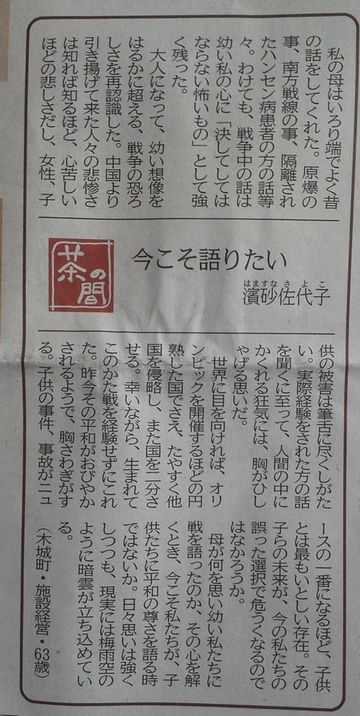 私の母はいろり端でよく昔
の話をしてくれた。原爆の
事、南方戦線の事、隔離され
たハンセン病患者の方の話等
々。わけても、戦争中の話は
幼い私の心に「決してしては
ならない怖いもの」として強
く残った。
大人になって、幼い想像を
はるかに超える、戦争の恐ろ
しさを再認識した。中国より
引き揚げて来た人々の悲惨さ
は知れば知るほど、心苦しい
ほどの悲しさだし、女性、子
茶の間
今こそ語りたい
はますなさよこ
濱砂佐代子
供の被害は筆舌に尽くしがた
い。実際経験をされた方の話
を聞くに至って、人間の中に
かくれる狂気には、胸がひし
ゃげる思いだ。
世界に目を向ければ、オリ
ンピックを開催するほどの円
熟した国でさえ、たやすく他
国を侵略し、また国を二分さ
せる。幸いながら、生まれて
このかた戦を経験せずにこれ
た。昨今その平和がおびやか
されるようで、胸さわぎがす
る。子供の事件、事故がニュ
ースの一番になるほど、子供
とは最もいとしい存在。その
子らの未来が、今の私たちの
誤った選択で危うくなるので
はなかろうか。
母が何を思い幼い私たちに
戦を語ったのか、その心を解
くとき、今こそ私たちが、子
供たちに平和の尊さを語る時
ではないか。日々思いは強く
しつつも、現実には梅雨空の
ように暗雲が立ち込めてい
る。
(木城町・施設経営・63歳)